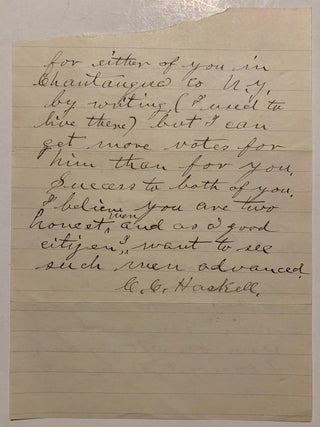 for either of you in
Chautauqua co N.Y.
by writing, (I used to
live there) but I can
get more votes for
him than for you.
Success to both of you.
I believe you are two
honest men, and as a good
citizen I, want to see
such men advanced.
C. C. Haskell.